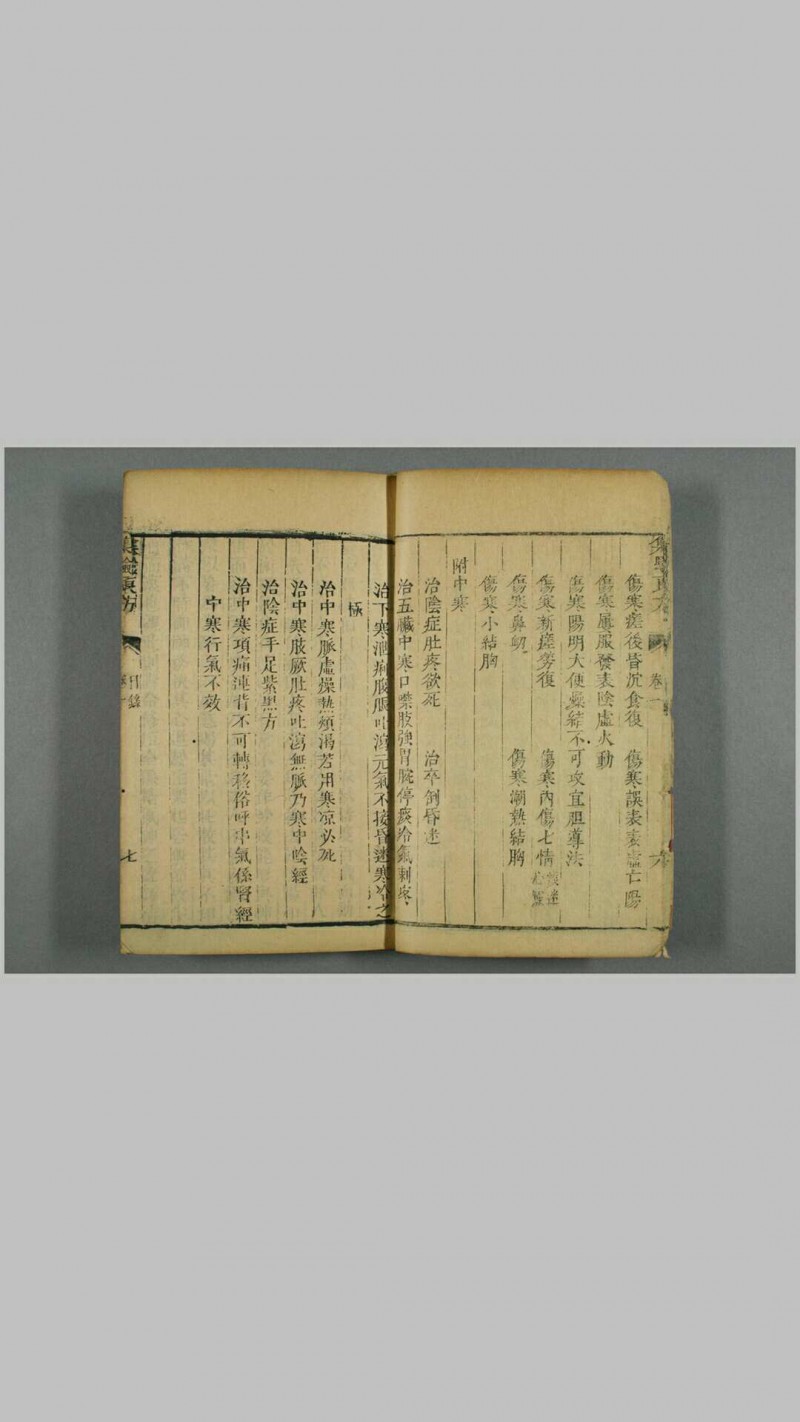 卷一
六
傷寒瘥後昏沉食復 傷寒誤表表虛亡陽
傷寒屢服發表陰虛火動
傷寒陽明大便燥結不可攻宜胆導法
傷寒新瘥勞復 傷寒內傷七情
傷寒鼻衂 傷寒潮熱結胸
傷寒小結胸
附中寒
治陰症肚疼欲死 治卒倒昏迷
治五臟中寒口噤肢強胃脘停痰冷氣刺疼
治下寒泄痢腹脹吐瀉元氣不接昏迷寒冷之
極
治中寒脈虛燥熱煩渴若用寒凉必死
治中寒肢厥肚疼吐瀉無脈乃寒中陰經
治陰症手足紫黑方
治中寒項痛連背不可轉移俗呼串氣係腎經
中寒行氣不效
集驗良方
目錄
七